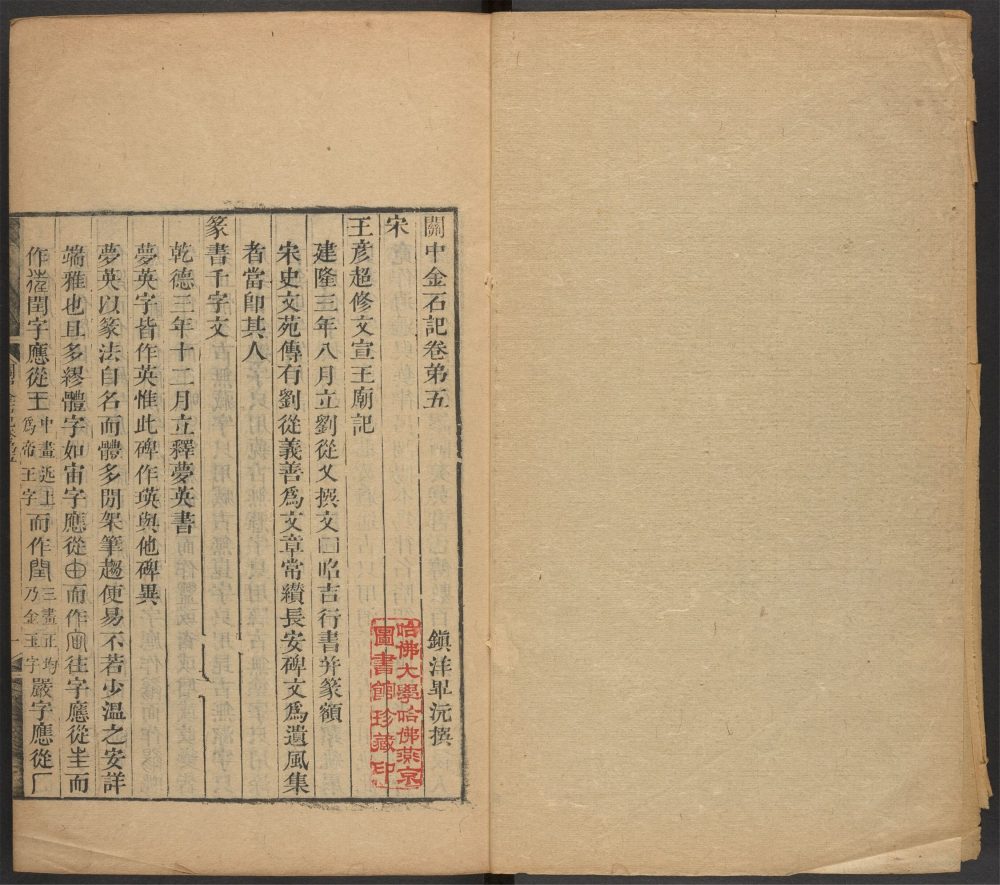 關中金石記卷弟五
鎭洋畢沅撰
宋
王彥超修文宣王廟記
建隆三年八月立劉從乂撰文曰昭吉行書并篆額
宋史文苑傳有劉從義善爲文章常纘長安碑文爲遺風集
者當卽其人
篆書千字文
乾德三年十二月立釋夢英書
夢英字皆作英惟此碑作瑛與他碑異
夢英以篆法自名而體多閒架筆趨便易不若少溫之安詳
端雅也且多繆體字如宙字應從由而作宙往字應從㞷而
作 閏字應從王中畫近上爲帝王字而作閏三畫正均乃金玉字嚴字應從厂
哈佛大學哈佛燕京
圖書館珍藏印